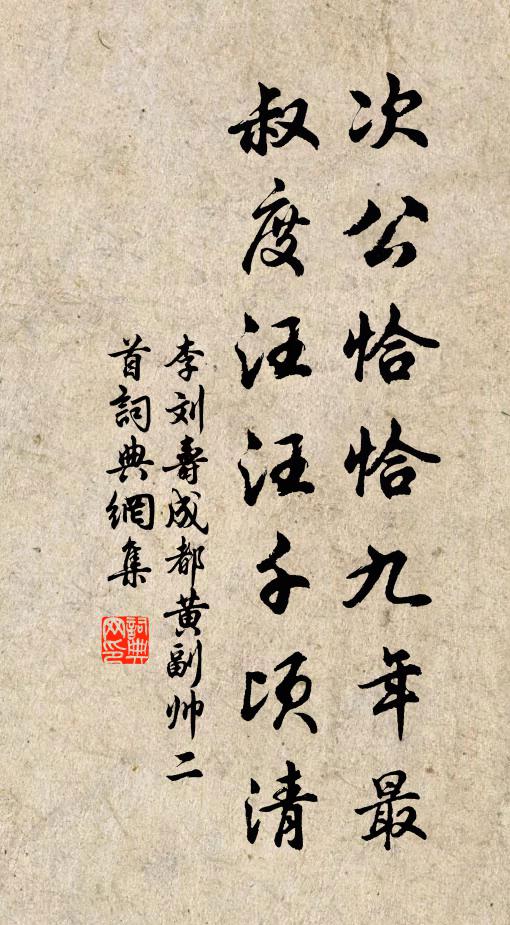 次公恰恰九年最
叔度汪汪千顷清
李刘寿成都黄副帅二
首詞典網集
詞典網印